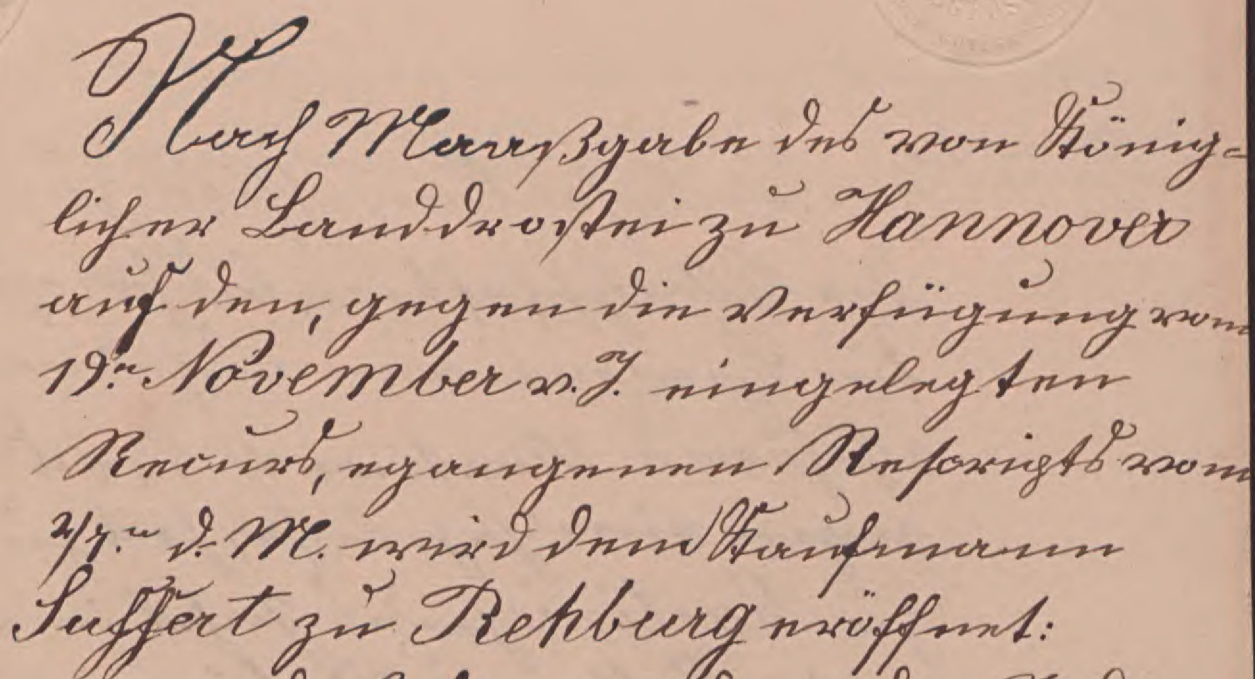 Nach Maaßgabe des von König-
licher Landdrostei zu Hannover
auf den, gegen die Verfügung vom
19n November v. J. eingelegten
Recurs, egangenen Rescripts vom
2/7.n d. M. wird dem Kaufmann
Suffert zu Rehburg eröffnet: